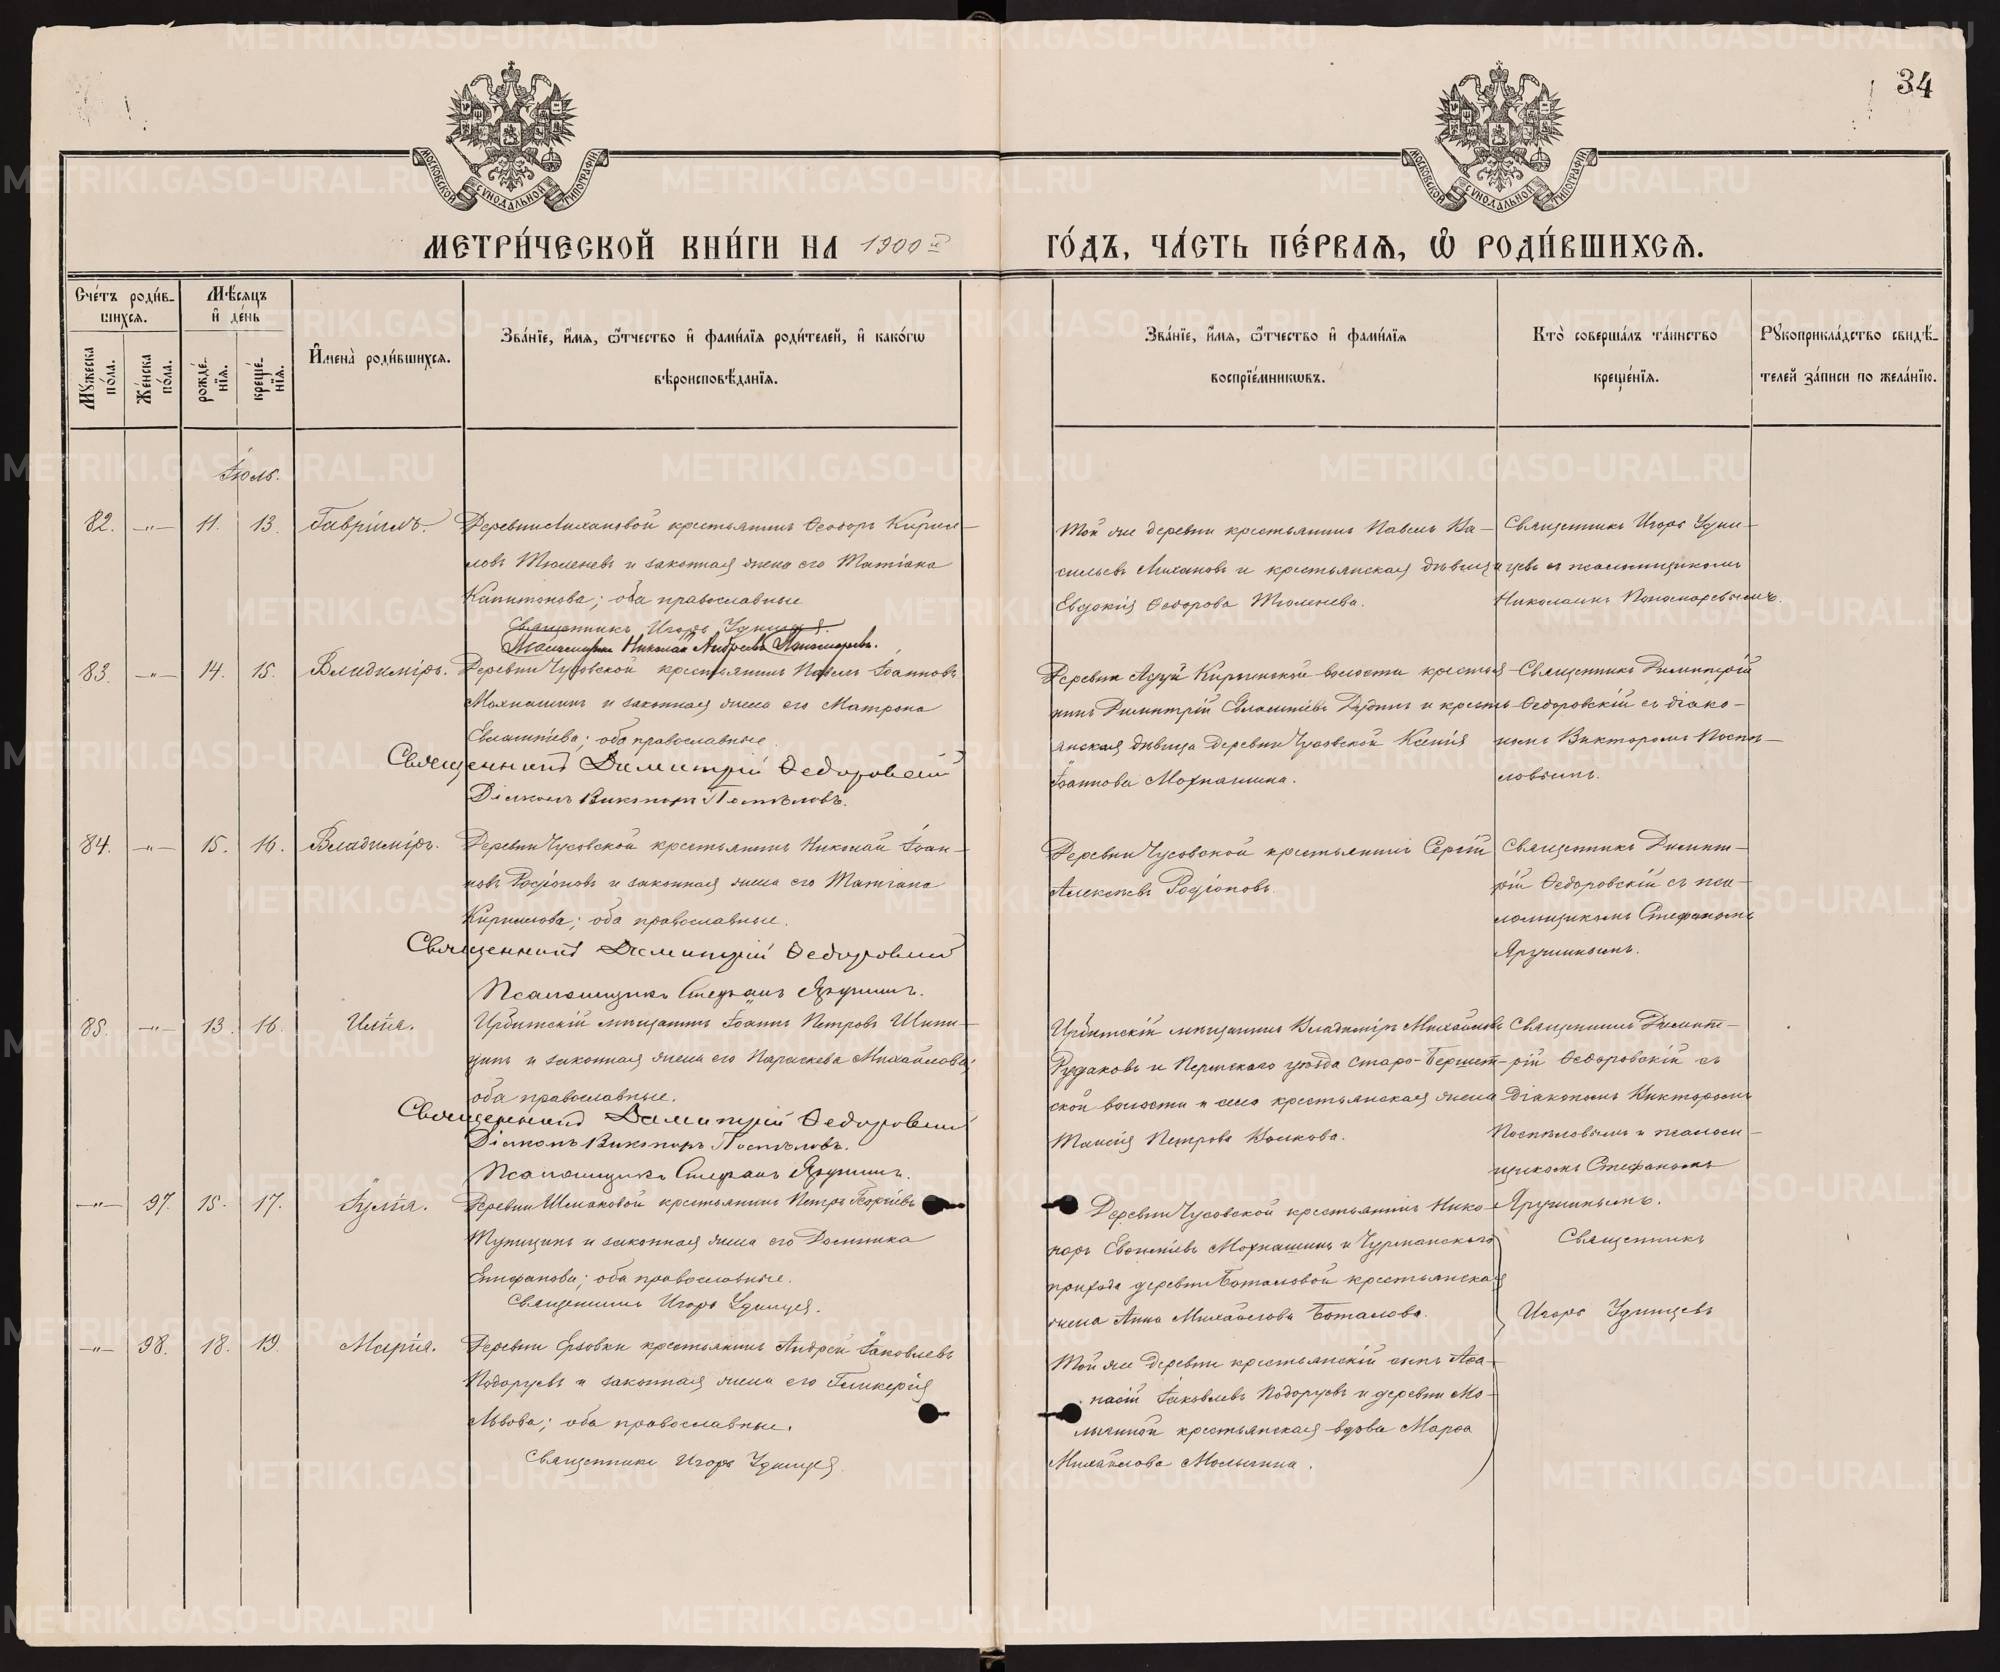 34
МОСКОВСКОЙ СѴНОДАЛЬНОЙ ТИПОГРАФІИ
МОСКОВСКОЙ СѴНОДАЛЬНОЙ ТИПОГРАФІИ
МЕТРИ́ЧЕСКОЙ КНИ́ГИ НА 1900й ГО́ДЪ, ЧА́СТЬ ПЕ́РВАѦ, Ѡ҆ РОДИ́ВШИХСѦ.
Сче́тъ роди́в-
шихсѧ.
Мѣ́сяцъ
и҆ де́нь
Мꙋ́жеска по́ла.
Же́нска по́ла.
рожде́-нїѧ.
креще́-нїѧ.
И҆мена̀ роди́вшихсѧ.
Зва́нїе, и҆́мѧ, ѻ҆́тчество и҆ фами́лїѧ роди́телей, и҆ како́гѡ
вѣроисповѣ́данїѧ.
Зва́нїе, и҆́мѧ, ѻ҆́тчество и҆ фами́лїѧ
воспрїе́мникѡвъ.
Кто̀ соверша́лъ та́инство
креще́нїѧ.
Рꙋкоприкла́дство свидѣ́-
телей за́писи по жела́нїю.
Іюль.
82. -"- 11. 13. Гавріилъ.
Деревни Лихановой крестьянинъ Ѳеодоръ Кирил-
ловъ Тюленевъ и законная жена его Татіана
Капитонова; оба православные
Священникъ Игорь Удинцев.
Псаломщикъ Николай Андреевъ Пономаревъ.
Той же деревни крестьянинъ Павелъ Ва-
сильевъ Лихановъ и крестьянская дѣвица
Евдокія Ѳеодорова Тюленева.
Священникъ Игорь Удин-
цевъ съ псаломщикомъ
Николаемъ Пономаревымъ.
83. -"- 14. 15. Владиміръ.
Деревни Чусовской крестьянинъ Павелъ Іоанновъ
Мохнашинъ и законная жена его Матрона
Евлампіева; оба православные.
Священникъ Димитрій Ѳедоровскій
Діаконъ Викторъ Поспѣловъ.
Деревни Адуй волости крестья-
нинъ Димитрій Евлампіевъ и кресть-
янская дѣвица деревни Чусовской Ксенія
Іоаннова Мохнашина.
Священникъ Димитрій
Ѳедоровскій съ діако-
номъ Викторомъ Поспѣ-
ловымъ.
84. -"- 15. 16. Владиміръ.
Деревни Чусовской крестьянинъ Николай Іоан-
новъ Родіоновъ и законная жена его Татіана
Кириллова; оба православные.
Священникъ Димитрій Ѳедоровскій
Псаломщикъ Стефанъ Яругинъ.
Деревни Чусовской крестьянинъ Сергій
Алексѣевъ Родіоновъ.
Священникъ Димит-
рій Ѳедоровскій съ пса-
ломщикомъ Стефаномъ
85. -"- 13. 16. Илія.
Ирбитскій мѣщанинъ Іоаннъ Петровъ Шипи-
цинъ и законная жена его Параскева Михайлова;
оба православные.
Священникъ Димитрій Ѳедоровскій
Діаконъ Викторъ Поспѣловъ.
Псаломщикъ Стефанъ
Ирбитскій мѣщанинъ Владиміръ Михайловъ
Рудаковъ и Пермскаго уѣзда Старо-Бершет-
ской волости и села крестьянская жена
Таисія Петрова Волкова.
Священникъ Димит-
рій Ѳедоровскій съ
діакономъ Викторомъ
Поспѣловымъ и псалом-
щикомъ Стефаномъ
-"- 97. 15. 17. Іулія.
Деревни Шмаковой крестьянинъ Петръ Георгіевъ
Тупицинъ и законная жена его Домника
Епифанова; оба православные.
Священникъ Игорь Удинцев.
Деревни Чусовской крестьянинъ Нико-
Мохнашинъ и
прихода деревни Боталовой крестьянская
жена Анна Михайлова Боталова.
Священникъ
Игорь Удинцевъ
-"- 98. 18. 19. Марія.
Деревни Ерзовки крестьянинъ Андрей Іаковлевъ
Подоруевъ и законная жена его Гликерія
Львова; оба православные.
Священникъ Игорь Удинцев.
Той же деревни крестьянскій сынъ Аѳа-
насій Іаковлевъ Подоруевъ и деревни Мо-
лычиной крестьянская вдова Марѳа
Михайлова Молычина.
METRIKI.GASO-URAL.RU